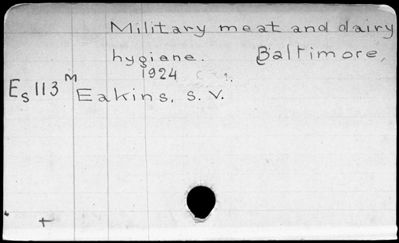 Military meat and dairy
hygiene. Baltimore,
1924
Es 113 M Eakins, S. V.